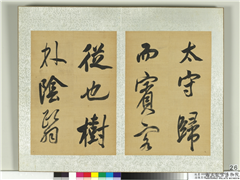 太守歸
而賓客
從也樹
林陰翳